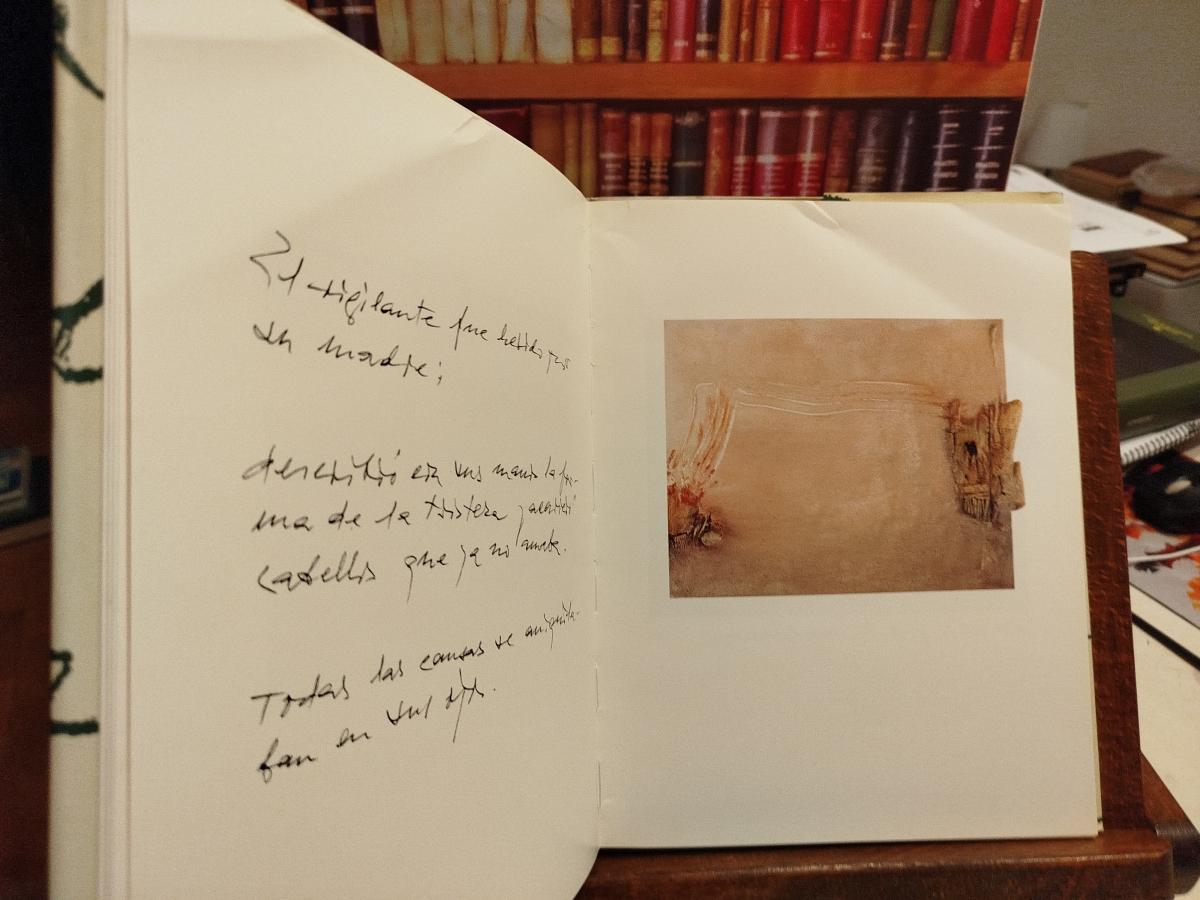 El vigilante fue herido por
su madre;
describió con sus manos la for-
ma de la tristeza y acarició
cabellos que ya no amaba.
Todas las causas se aniquila-
ban en sus ojos.